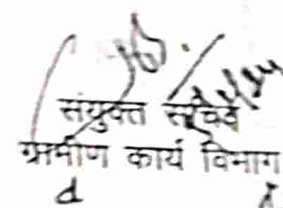 संयुक्त सचिव
ग्रामीण कार्य विभाग